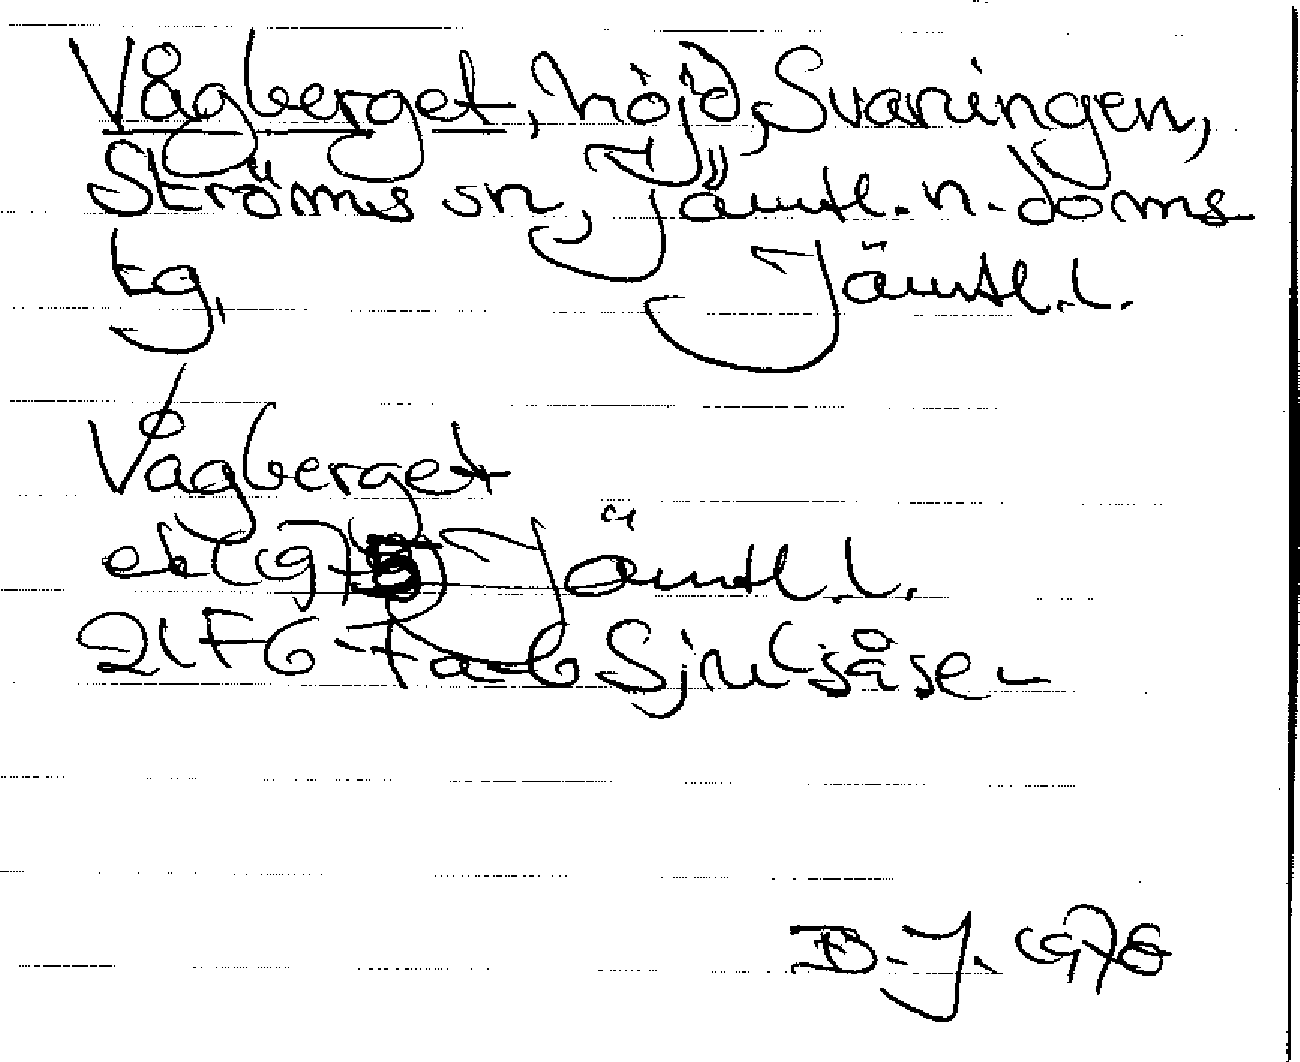 Vågberget, höjd, Svaningen,
Ströms sn, Jämtl. n. doms
tg, Jämtl. l.
Vågberget
ek (1975) Jämtl. l.
21F6-7a-b Sjulsåsen
B.J. 1976